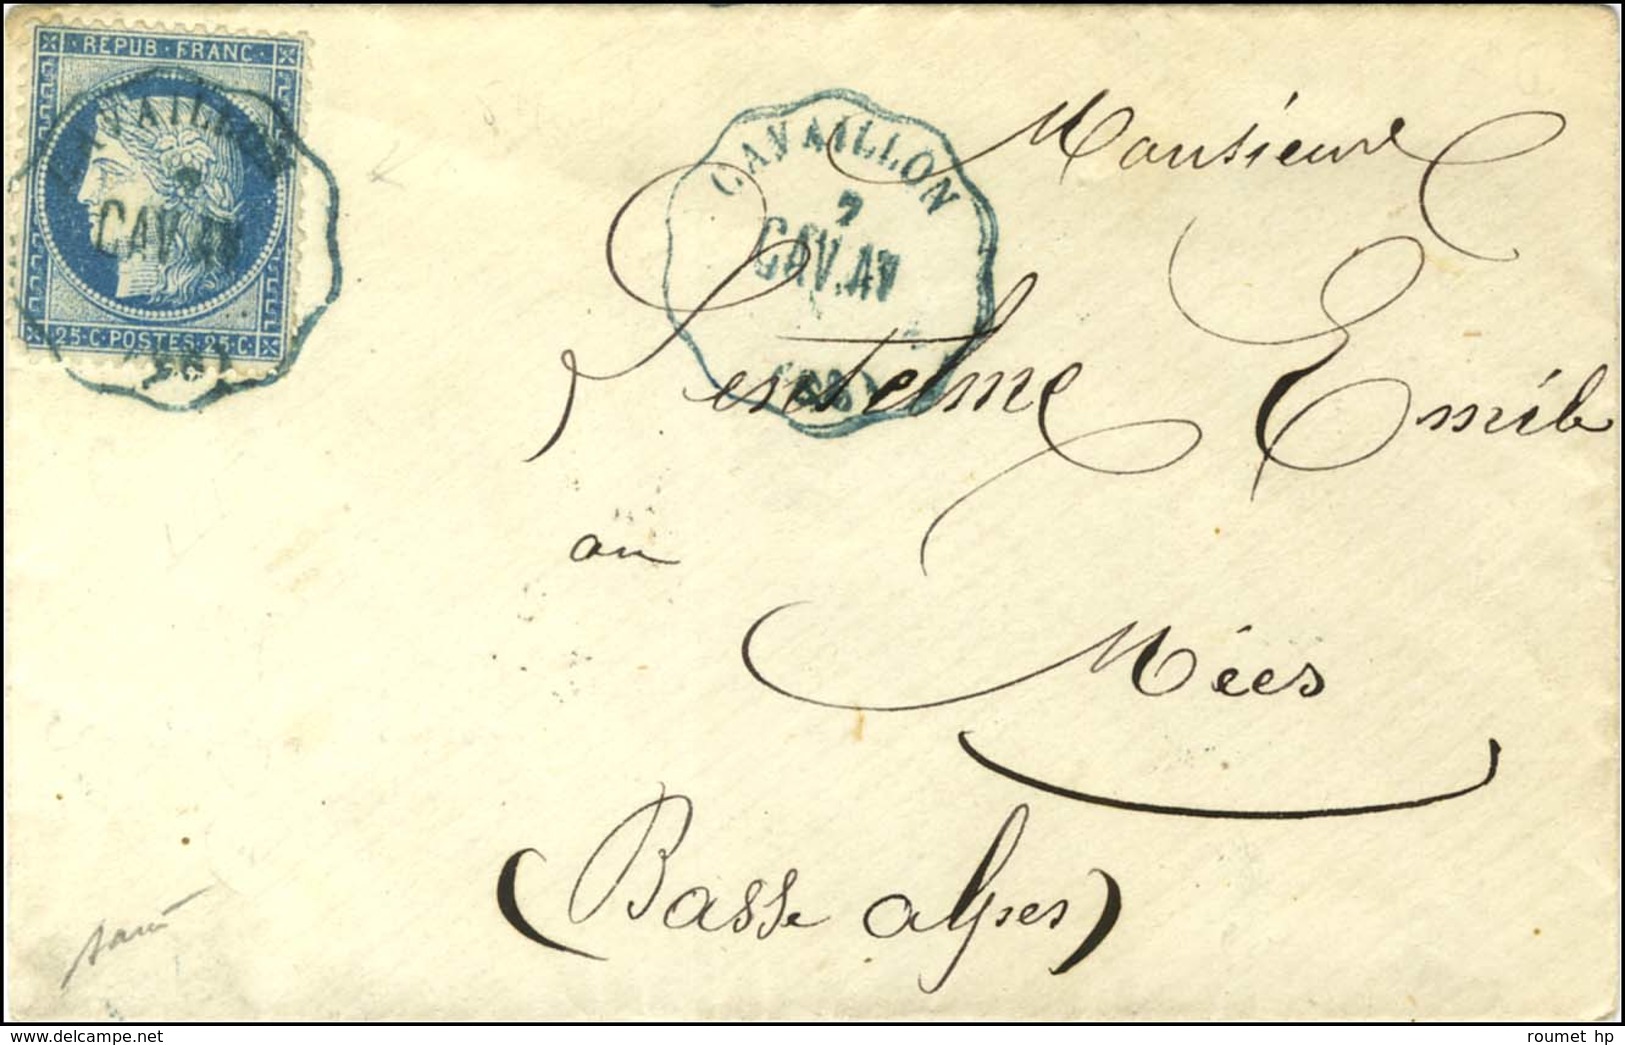 REPUB · FRANC
CAVAILLON
2
CAV.AV
25·C·POSTES·25·C
(88)
CAVAILLON
2
CAV.AV
(88)
Monsieur
Pentelme Emile
au
Mées
(Basse alpes)
© www.delcampe.net
roumet hp